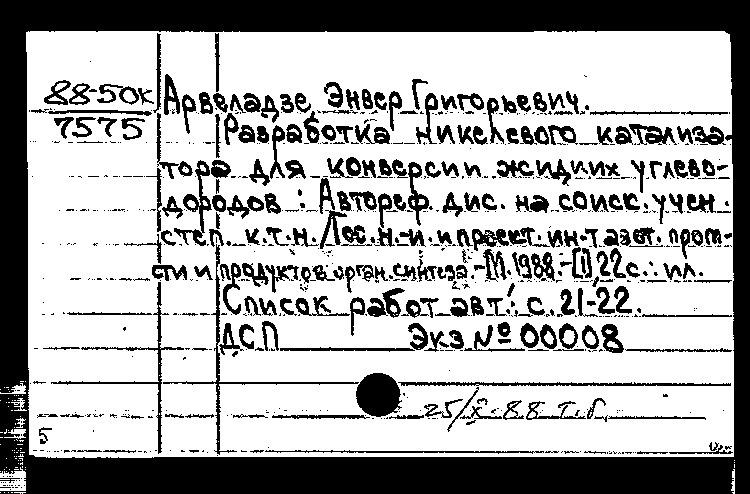 88-50к
7575
Арвеладзе Энвер Григорьевич.
Разработка никелевого катализа-
тора для конверсии жидких углево-
дородов : Автореф. дис. на соиск. учен.
степ. к.т.н. /Гос. н.-и. и проект. ин-т азот. пром-
сти и продуктов орган. синтеза.-М. 1988.-[1], 22 с. : ил.
Список работ авт.: с. 21-22.
ДСП Экз № 00008
25/X-88 т.б.
5